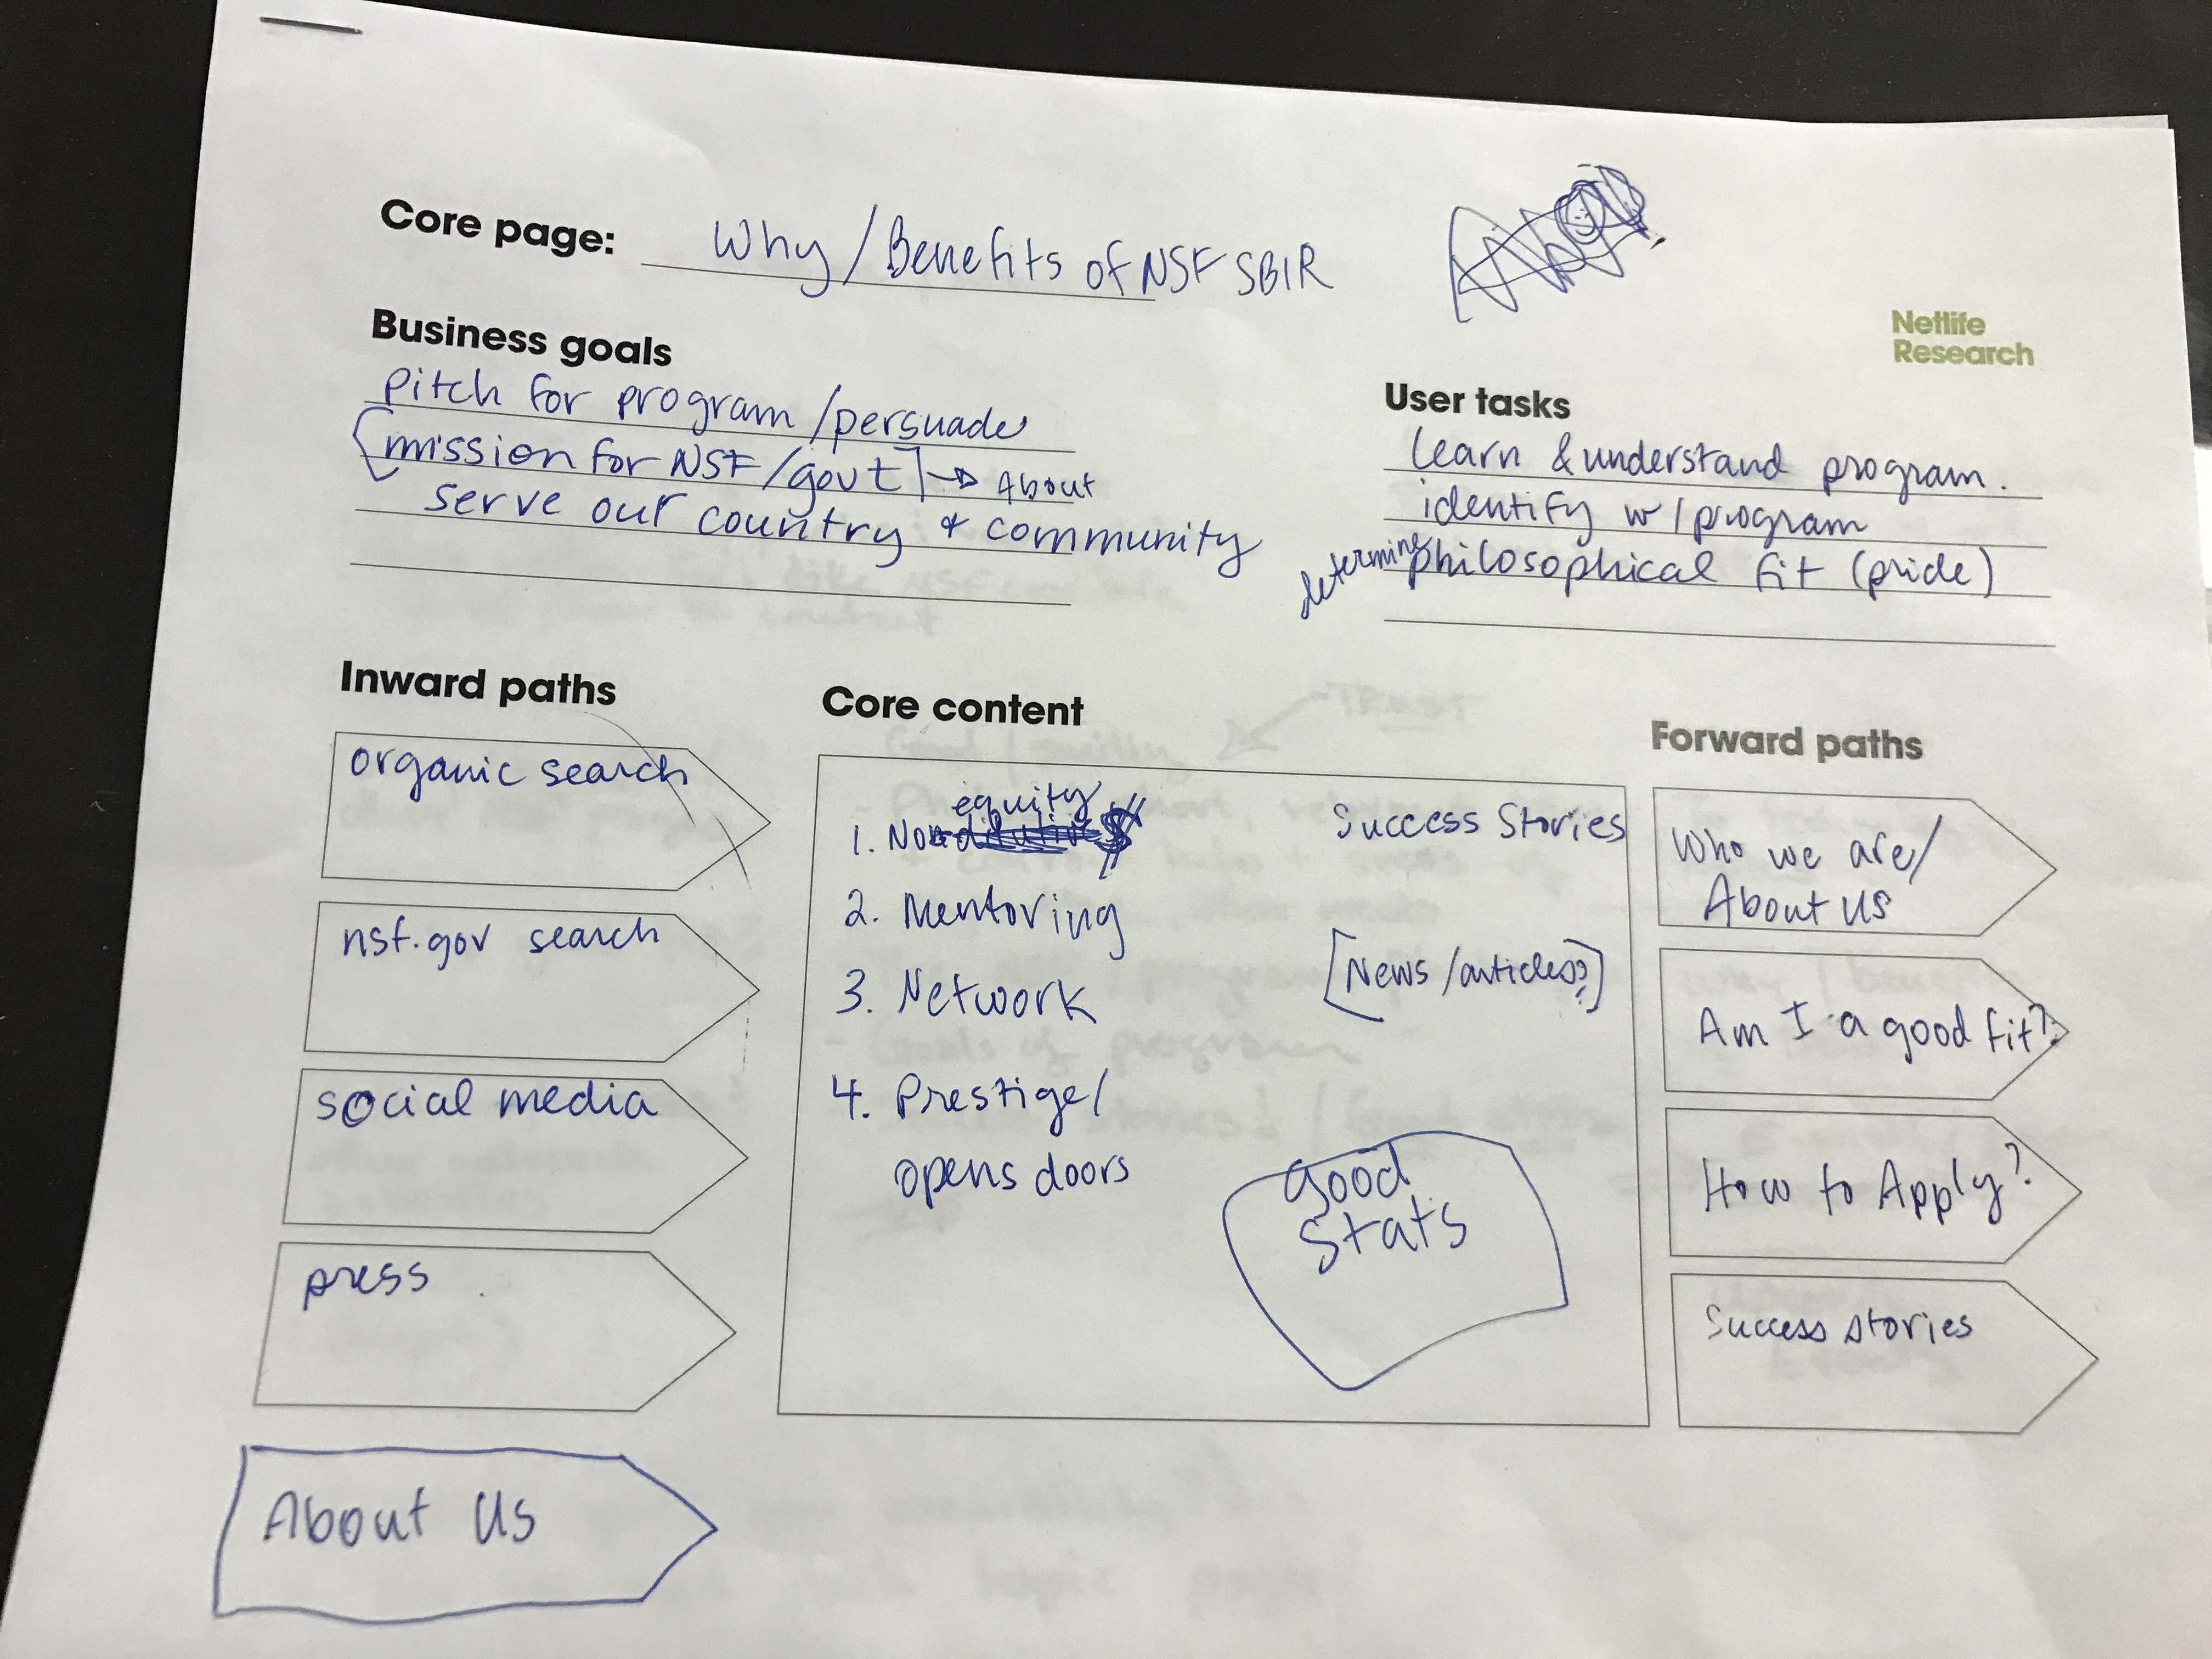 Core page: Why/Benefits of NSF SBIR
Netlife
Research
Business goals
Pitch for program/persuade
[mission for NSF/govt] → About
serve our country & community
User tasks
learn & understand program.
identify w/program
determine philosophical fit (pride)
Inward paths
organic search
nsf.gov search
social media
press
About Us
Core content
equity
1. No $
2. Mentoring
3. Network
4. Prestige/
opens doors
Success Stories
[News/articles?]
good
stats
Forward paths
Who we are/
About us
Am I a good fit?
How to Apply?
Success stories